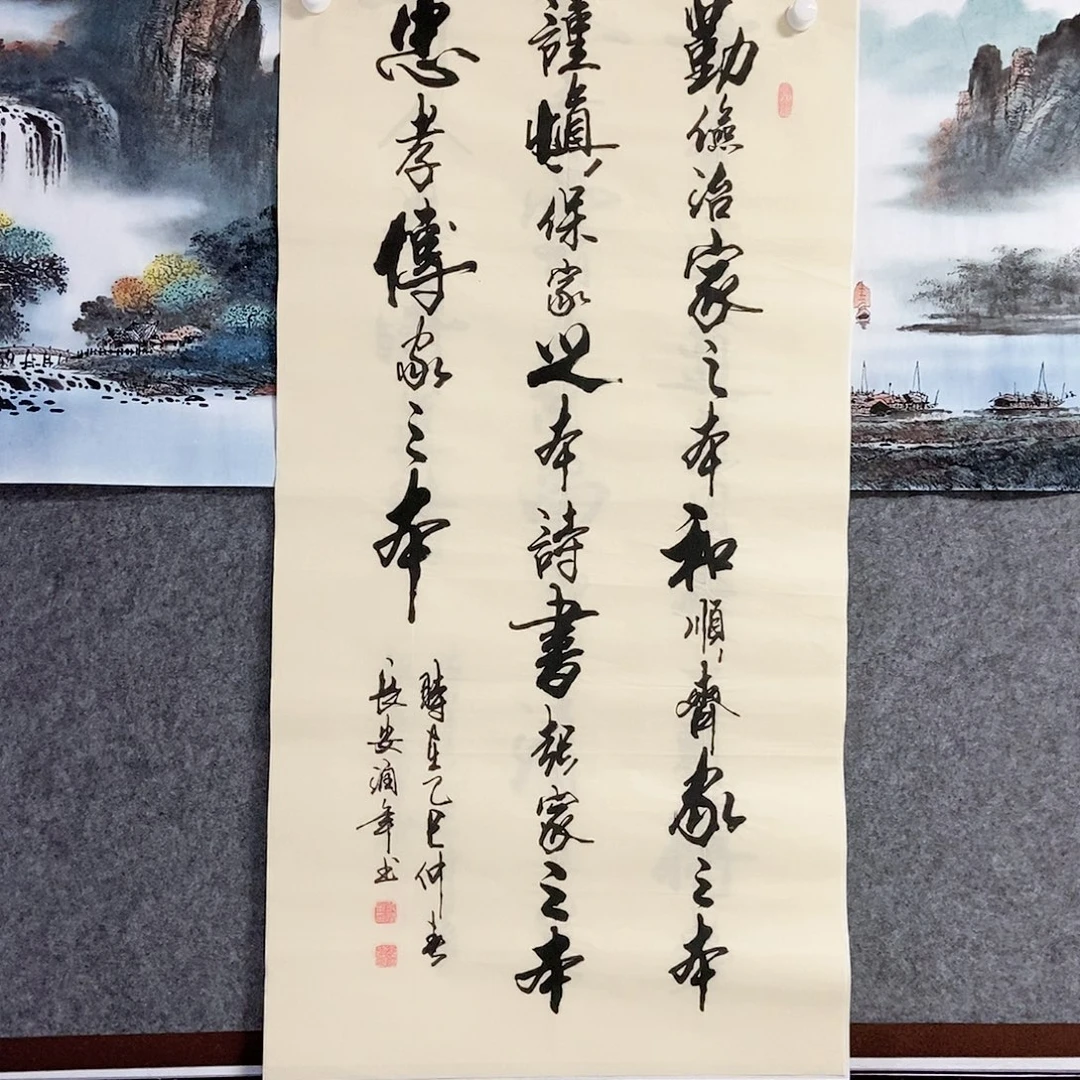 勤儉治家之本和順齊家之本
謹慎保家之本詩書起家之本
忠孝傳家之本
時在乙巳仲春
長安润年书